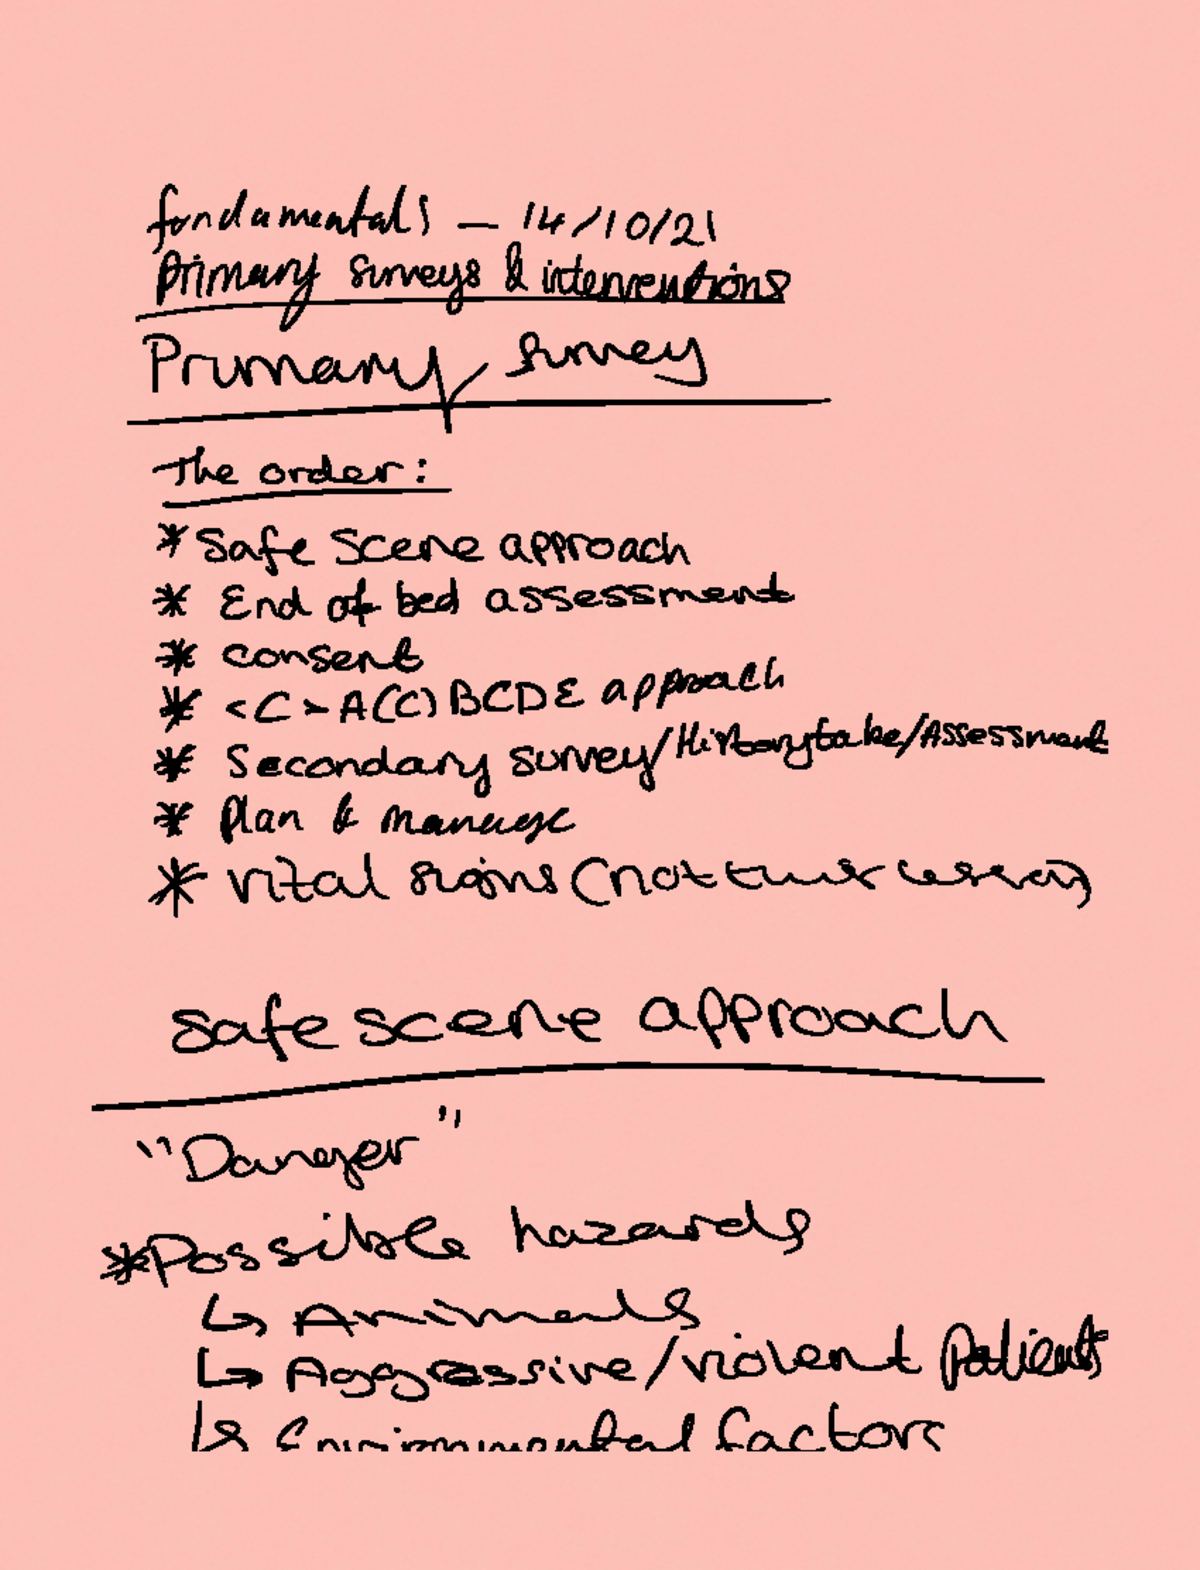 fundamentals — 14/10/21
Primary surveys & interventions
Primary survey
The order:
* Safe scene approach
* End of bed assessment
* consent
* <C> A(C)BCDE approach
* Secondary survey/Historytake/Assessment
* Plan & manage
* vital signs (not this lesson)
safe scene approach
"Danger"
*Possible hazards
↳ Animals
↳ Aggressive/violent patients
↳ Environmental factors